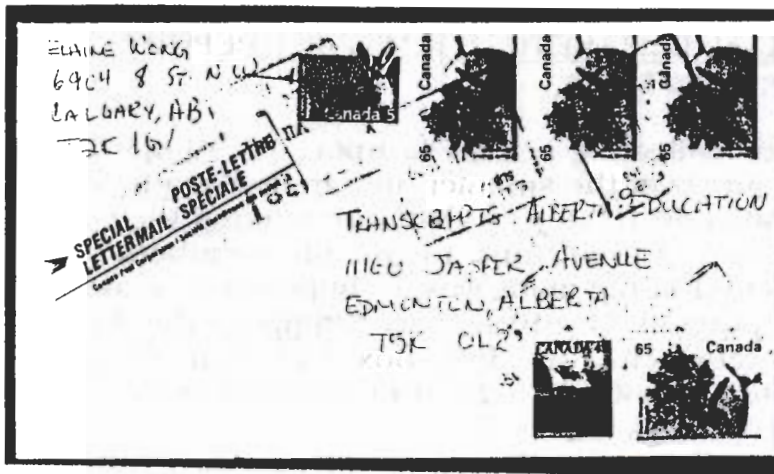 ELAINE WONG
6904 8 ST. N W
CALGARY, AB
T2K 1G1
Canada 5
Canada
65
Canada
65
Canada
65
POSTE-LETTRE
SPÉCIALE
SPECIAL
LETTERMAIL
TRANSCRIPTS ALBERTA EDUCATION
11160 JASPER AVENUE
EDMONTON, ALBERTA
T5K 0L2
CANADA
65 Canada